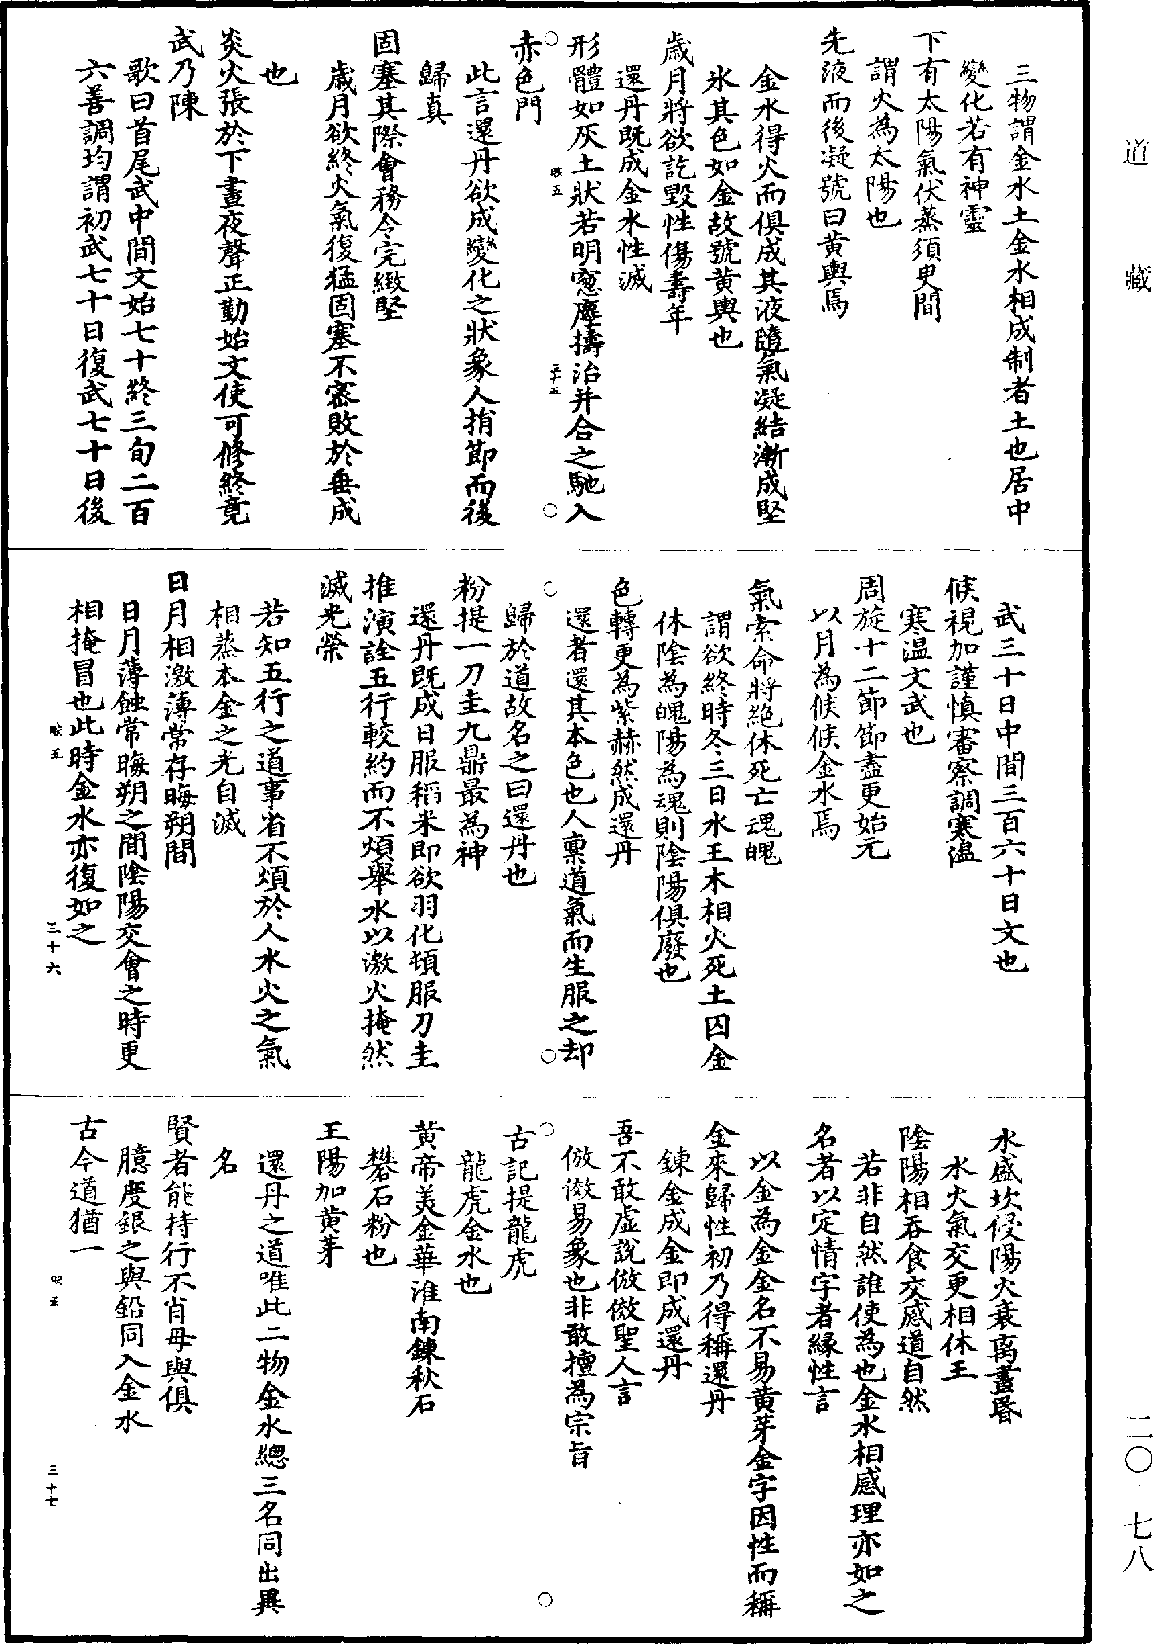 道藏
二〇 七八
三物謂金水土金水相成制者土也居中
變化若有神靈
下有太陽氣伏蒸須臾間
謂火為太陽也
先液而後凝號曰黃輿焉
金水得火而俱成其液隨氣凝結漸成堅
氷其色如金故號黃輿也
歲月將欲訖毀性傷壽年
還丹既成金水性滅
形體如灰土狀若明窻塵擣治并合之馳入
赤色門
此言還丹欲成變化之狀象人揹節而後
歸真
固塞其際會務令完緻堅
歲月欲終火氣復猛固塞不密敗於垂成
也
炎火張於下晝夜聲正勤始文使可修終竟
武乃陳
歌曰首尾武中間文始七十終三旬二百
六善調均謂初武七十日復武七十日後
武三十日中間三百六十日文也
候視加謹慎審察調寒溫
寒溫文武也
周旋十二節節盡更始元
以月為候候金水焉
氣索命將絕休死亡魂魄
謂欲終時冬三日水王木相火死土囚金
休陰為魄陽為魂則陰陽俱廢也
色轉更為紫赫然成還丹
還者還其本色也人稟道氣而生服之却
歸於道故名之曰還丹也
粉提一刀圭九鼎最為神
還丹既成日服稻米即欲羽化頓服刀圭
推演詮五行較約而不煩舉水以激火掩然
滅光榮
若知五行之道事省不煩於人水火之氣
相蒸本金之光自滅
日月相激薄常存晦朔間
日月薄蝕常晦朔之間陰陽交會之時更
相掩冒也此時金水亦復如之
三十六
水盛坎侵陽火衰离晝昏
水火氣交更相休王
陰陽相吞食交感道自然
若非自然誰使為也金水相感理亦如之
名者以定情字者緣性言
以金為金金名不易黃芽金字因性而稱
金來歸性初乃得稱還丹
鍊金成金即成還丹
吾不敢虛說倣傚聖人言
倣傚易象也非敢擅為宗旨
古記提龍虎
龍虎金水也
黃帝美金華淮南鍊秋石
礬石粉也
王陽加黃芽
還丹之道唯此二物金水總三名同出異
名
賢者能持行不肖毋與俱
臆度銀之與鉛同入金水
古今道猶一
三十七